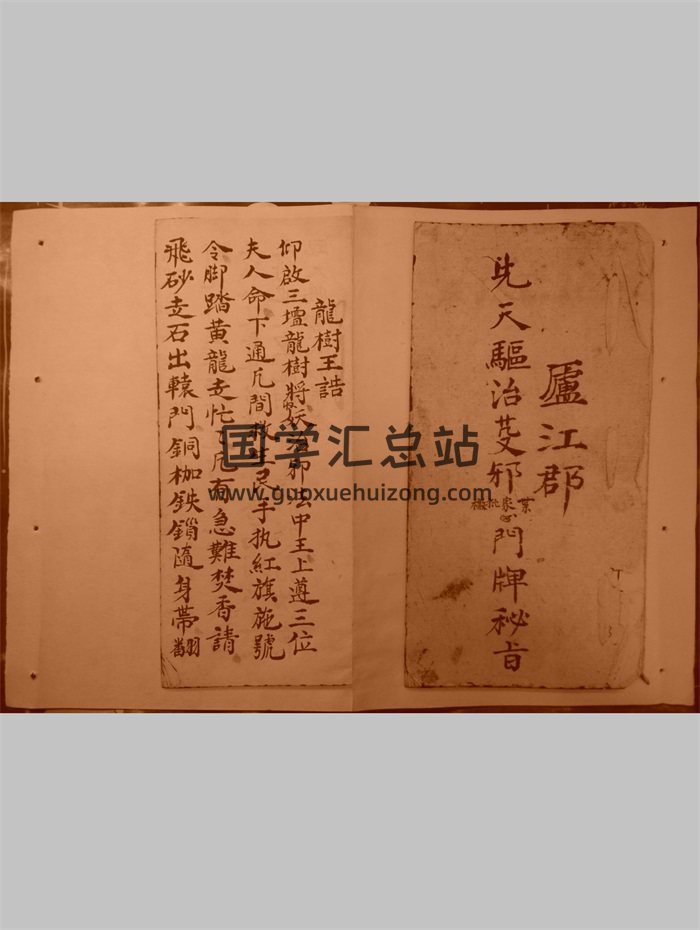 廬江郡
先天驅治芟邪門牌秘旨
龍樹王誥
仰啟三壇龍樹將 妖 邪 中王上遵三位
夫人命下通凡間救 良手执紅旗施號
令脚踏黃龍走忙忙凡有急難焚香請
飛砂走石出轅門銅枷鉄鎖隨身帶翻
国学汇总站
www.guoxuehuizong.com